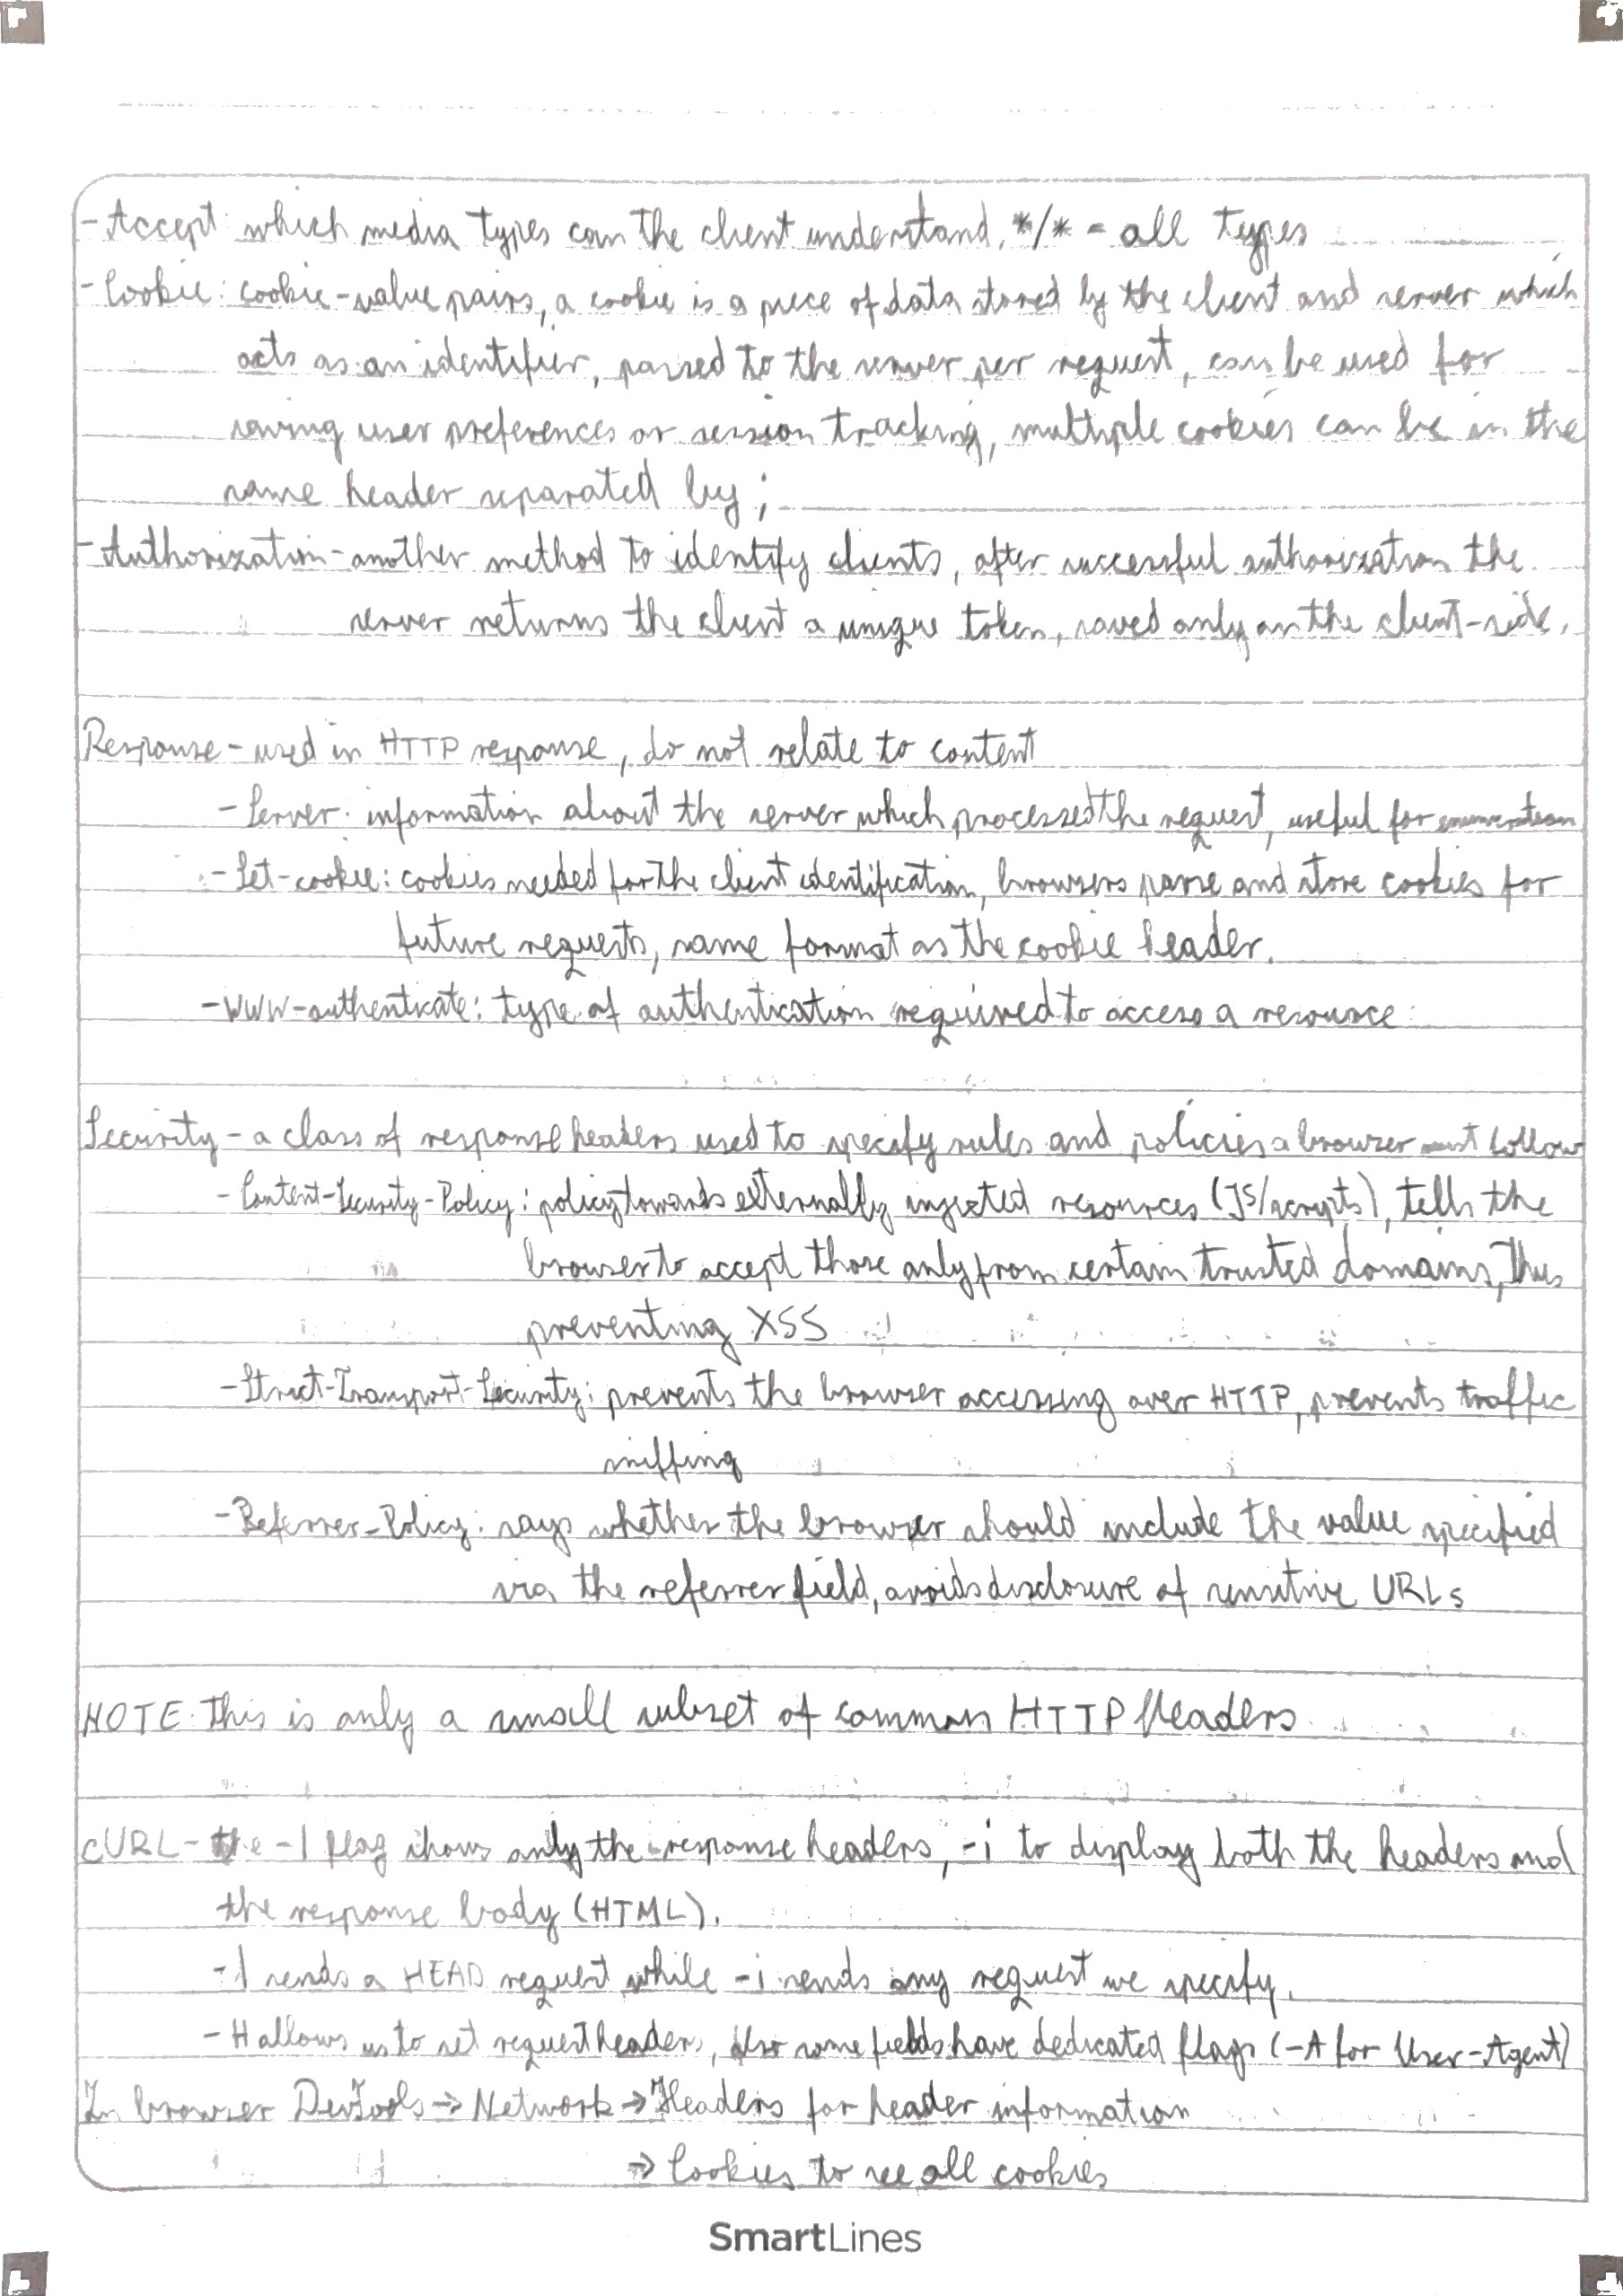 - Accept: which media types can the client understand, */* = all types
- Cookie: cookie-value pairs, a cookie is a piece of data stored by the client and server which
acts as an identifier, passed to the server per request, can be used for
saving user preferences or session tracking, multiple cookies can be in the
same header separated by ;
- Authorization - another method to identify clients, after successful authorization the
server returns the client a unique token, saved only on the client-side.
Response - used in HTTP response, do not relate to content
- Server: information about the server which processed the request, useful for enumeration
- Set-cookie: cookies needed for the client identification, browsers parse and store cookies for
future requests, same format as the cookie header.
- WWW-authenticate: type of authentication required to access a resource.
Security - a class of response headers used to specify rules and policies a browser must follow
- Content-Security-Policy: policy towards externally injected resources (JS/scripts), tells the
browser to accept those only from certain trusted domains, thus
preventing XSS
- Strict-Transport-Security: prevents the browser accessing over HTTP, prevents traffic
sniffing
- Referrer-Policy: says whether the browser should include the value specified
via the referrer field, avoids disclosure of sensitive URLs
NOTE: This is only a small subset of common HTTP Headers
cURL - the -I flag shows only the response headers, -i to display both the headers and
the response body (HTML).
-I sends a HEAD request while -i sends any request we specify.
-H allows us to set request headers, also some fields have dedicated flags (-A for User-Agent)
In browser DevTools → Network → Headers for header information
→ Cookies to see all cookies
SmartLines